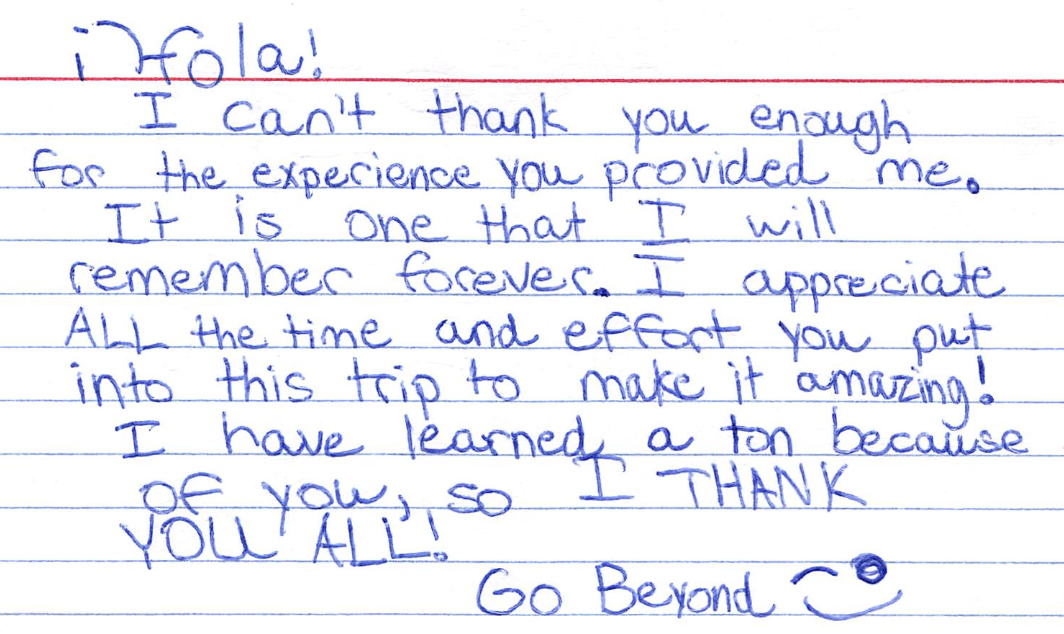 ¡Hola!
I can't thank you enough
for the experience you provided me.
It is one that I will
remember forever. I appreciate
ALL the time and effort you put
into this trip to make it amazing!
I have learned a ton because
of you, so I THANK
YOU ALL!
Go Beyond